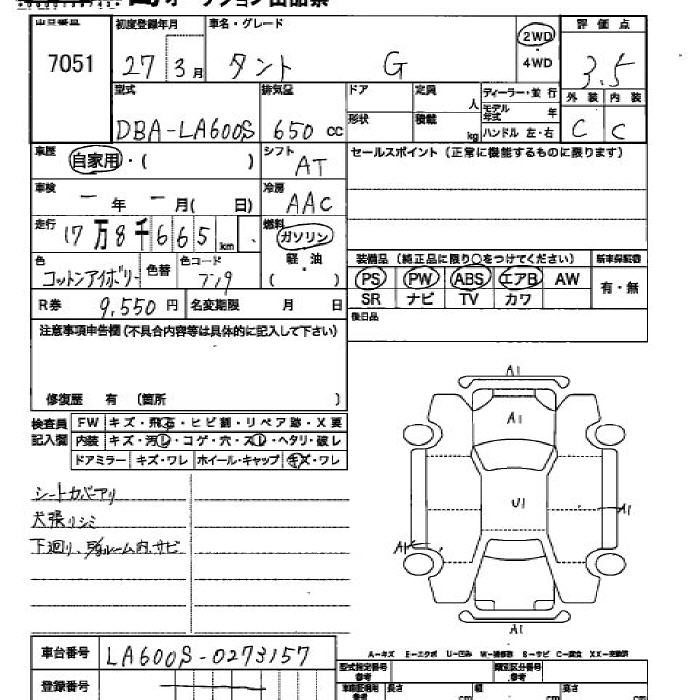 オークション出品票
出品番号 初度登録年月 車名・グレード 評価点
7051 27 3月 タント G 2WD・4WD 3.5
型式 排気量 ドア 定員 人 ディーラー・並行 外装 内装
DBA-LA600S 650cc 形状 積載 kg モデル年式 年 ハンドル 左・右 C C
車歴 自家用・( ) シフト AT セールスポイント(正常に機能するものに限ります)
車検 ー年 ー月( 日) 冷房 AAC
走行 17万8千665km 燃料 ガソリン
色 コットンアイボリー 色替 色コード 軽・油 ( ) 装備品(純正品に限り○をつけてください) 新車保証書
PS PW ABS エアB AW 有・無
R券 9,550円 名変期限 月 日 SR ナビ TV カワ
注意事項申告欄(不具合内容等は具体的に記入して下さい) 後日品
修復歴 有 〔箇所 〕
検査員 FW キズ・飛石・ヒビ割・リペア跡・X要
記入欄 内装 キズ・汚レ・コゲ・穴・スレ・ヘタリ・破レ
ドアミラー キズ・ワレ ホイール・キャップ キズ・ワレ
シートカバーアリ
天張リシミ
下廻リ、E/gルーム内、サビ
A1
A1
U1
A1
A1
A1
A-キズ E-エクボ U-凹み W-補修跡 S-サビ C-腐食 XX-交換済
車台番号 LA600S-0273157 型式指定番号 類別区分番号
登録番号 車庫証明用参考 長さ cm 幅 cm 高さ cm